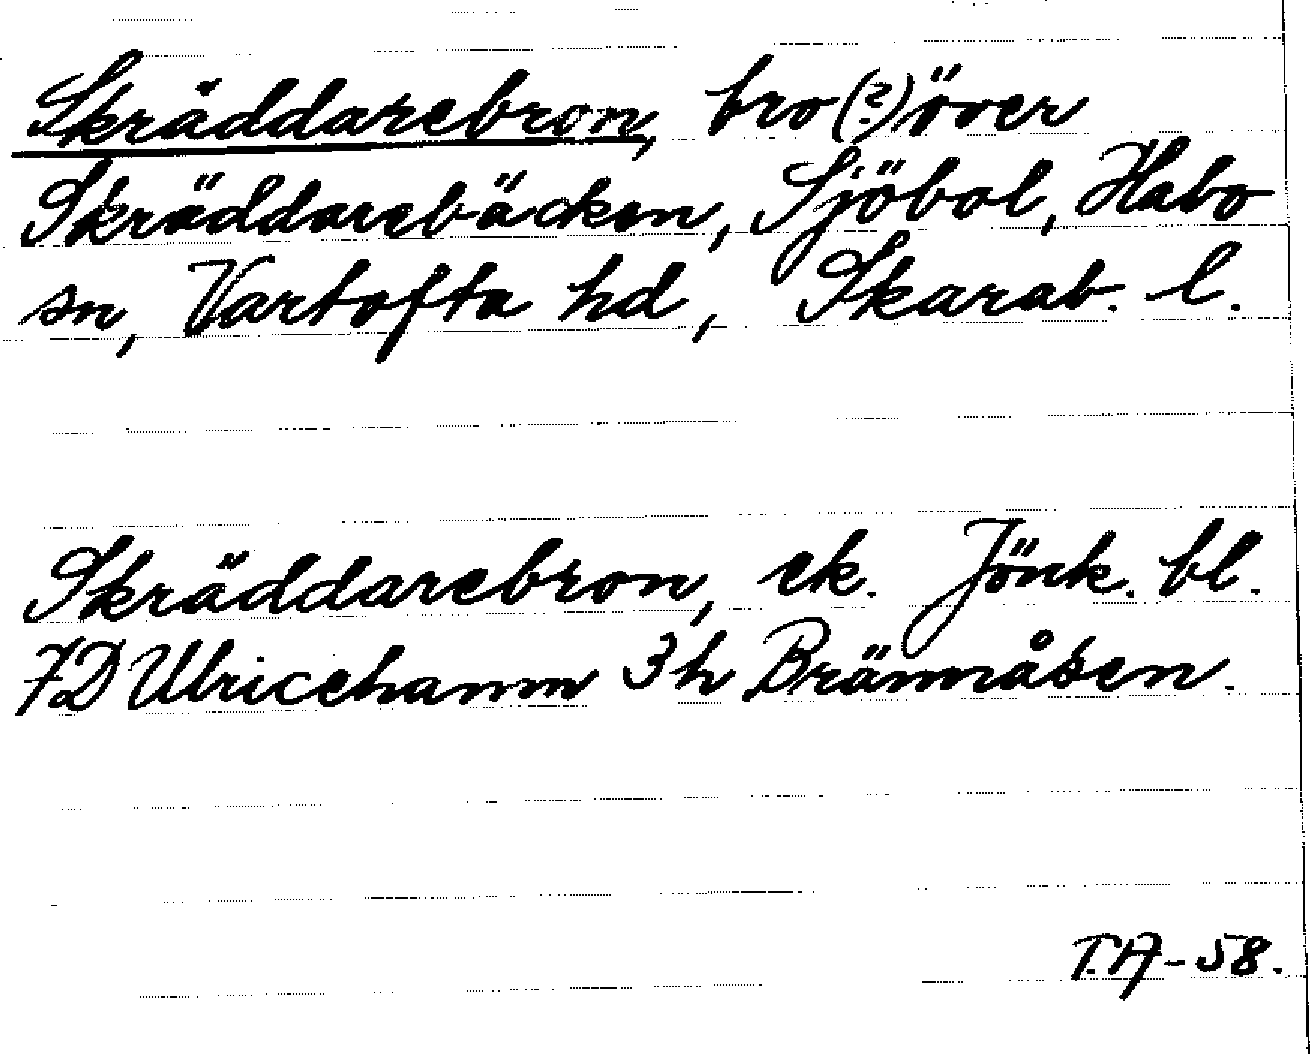 Skräddarebron, bro(?) över
Skräddarebäcken, Sjöbol, Habo
sn, Vartofta hd, Skarab. l.
Skräddarebron, ek. Jönk. bl.
7D Ulricehamn 3h Brännåsen.
T.A-58.